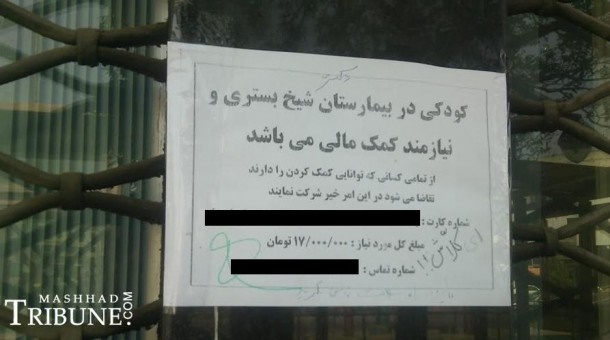 کودکی در بیمارستان شیخ بستری و
نیازمند کمک مالی می باشد
از تمامی کسانی که توانایی کمک کردن را دارند
تقاضا می شود در این امر خیر شرکت نمایند
شماره کارت :
مبلغ کل مورد نیاز : ۱۷/۰۰۰/۰۰۰ تومان
شماره تماس :
ای کلاش !!
MASHHAD
TRIBUNE.COM